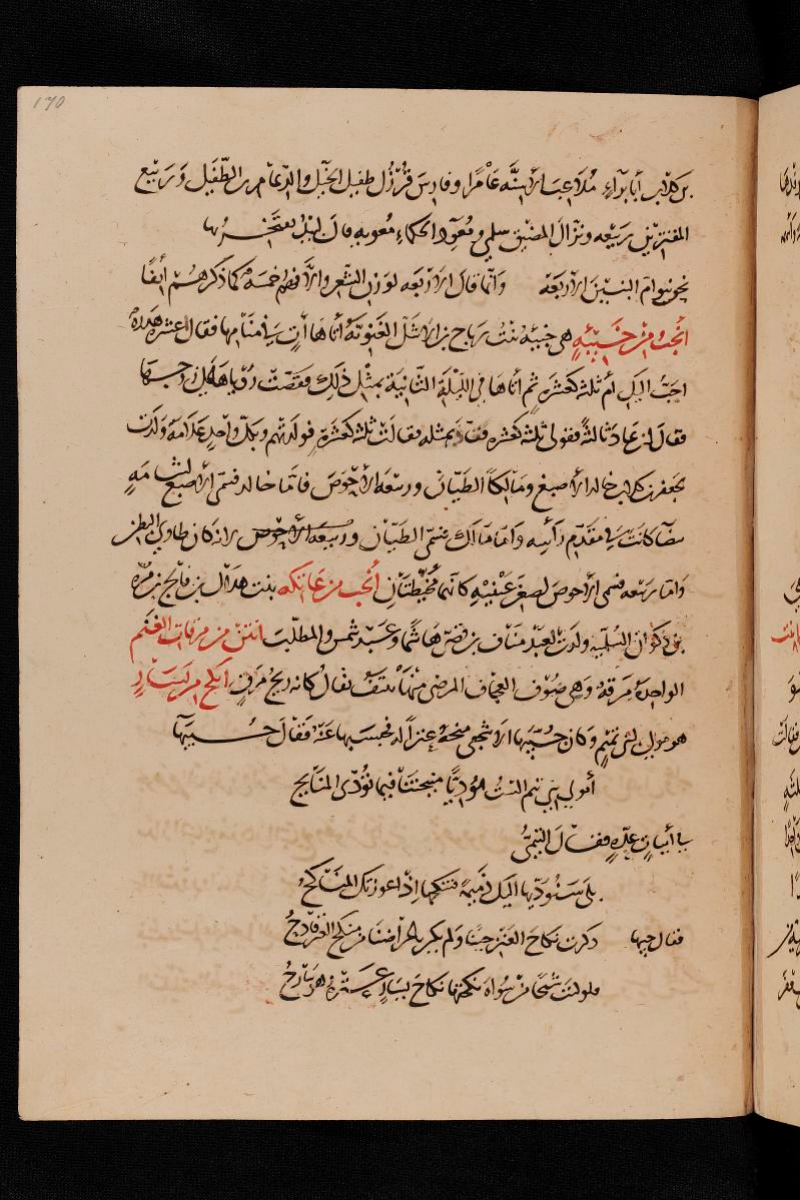 170
بن كلاب أبا براء ملاعب الأسنة عامرا وفارس قرزل طفيل الخيل والد عامر بن الطفيل وربيع
المقترين ربيعه ونزال المضيق سلمى ومعود الحكماء معويه قال لبيد يفتخر بها
نحن بنو ام البنين الاربعه وانما قال الاربعه لوزن الشعر والا فهم خمسة كما ذكر هشم أيضا
انجب من خبيئة هي خبيئة بنت رياح بن الاشل الغنوية أتاها آت في منامها فقال أعشرة هدرة
احب اليك أم ثلثة كعشرة ثم اتاها في الليلة الثانية بمثل ذلك فقصت رؤياها على زوجها
فقال ان عاد ثالثة فقولي ثلثة كعشره فعاد بمثله فقالت ثلثة كعشرة فولدتهم وبكل واحد علامة ولدت
لجعفر بن كلاب خالد الاصبغ ومالكا الطيان وربيعة الاحوص فاما خالد فسمى الاصبغ لشامة
بيضا كانت في مقدم رأسه واما مالك فسمى الطيان لانه كان طاوي البطن
واما ربيعه فسمى الاحوص لصغر عينيه كانهما مخيطتان أنجب من عاتكه بنت هلال بن فالج بن مره
بن ذكوان السلميه ولدت لعبد مناف بن قصي هاشما وعبد شمس والمطلب انتن من مرقات الغنم
الواحدة مرقة وهي صوف العجاف المرضى منها تنتف يقال كانه ريح مرق انكح من يسار
هو مولى لبني تميم وكان جبيها الاشجعي منحه عنزا له فحبسها عنه فقال جبيها
أمولى بني تيم الست مؤديا منيحتنا فيما تؤدى المنايح
في أبيات عدة فقال التيمي
بلى سنؤديها اليك ذميمة فتنكحها اذ اعوزتك المناكح
فقال جبيها ذكرت نكاح العنز حينا ولم يكن باعراضنا من منكح العنز قادح
فلو كنت شيخا من سواة نكحتها نكاح يسار عنزه وهو سارح